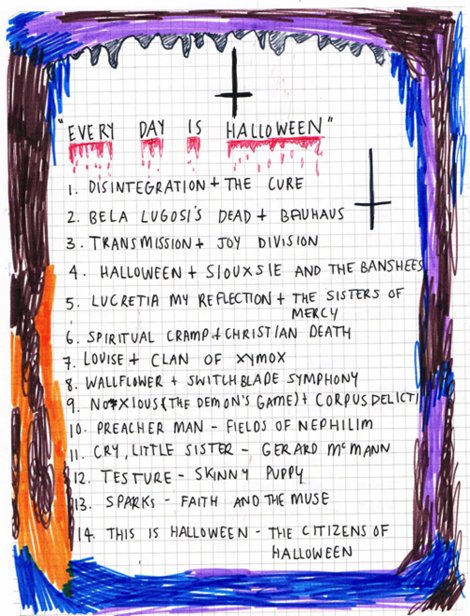 "EVERY DAY IS HALLOWEEN"
1. DISINTEGRATION + THE CURE
2. BELA LUGOSI'S DEAD + BAUHAUS
3. TRANSMISSION + JOY DIVISION
4. HALLOWEEN + SIOUXSIE AND THE BANSHEES
5. LUCRETIA MY REFLECTION + THE SISTERS OF
MERCY
6. SPIRITUAL CRAMP + CHRISTIAN DEATH
7. LOUISE + CLAN OF XYMOX
8. WALLFLOWER + SWITCHBLADE SYMPHONY
9. NOXIOUS (THE DEMON'S GAME) + CORPUS DELICTI
10. PREACHER MAN - FIELDS OF NEPHILIM
11. CRY, LITTLE SISTER - GERARD McMANN
12. TESTURE - SKINNY PUPPY
13. SPARKS - FAITH AND THE MUSE
14. THIS IS HALLOWEEN - THE CITIZENS OF
HALLOWEEN